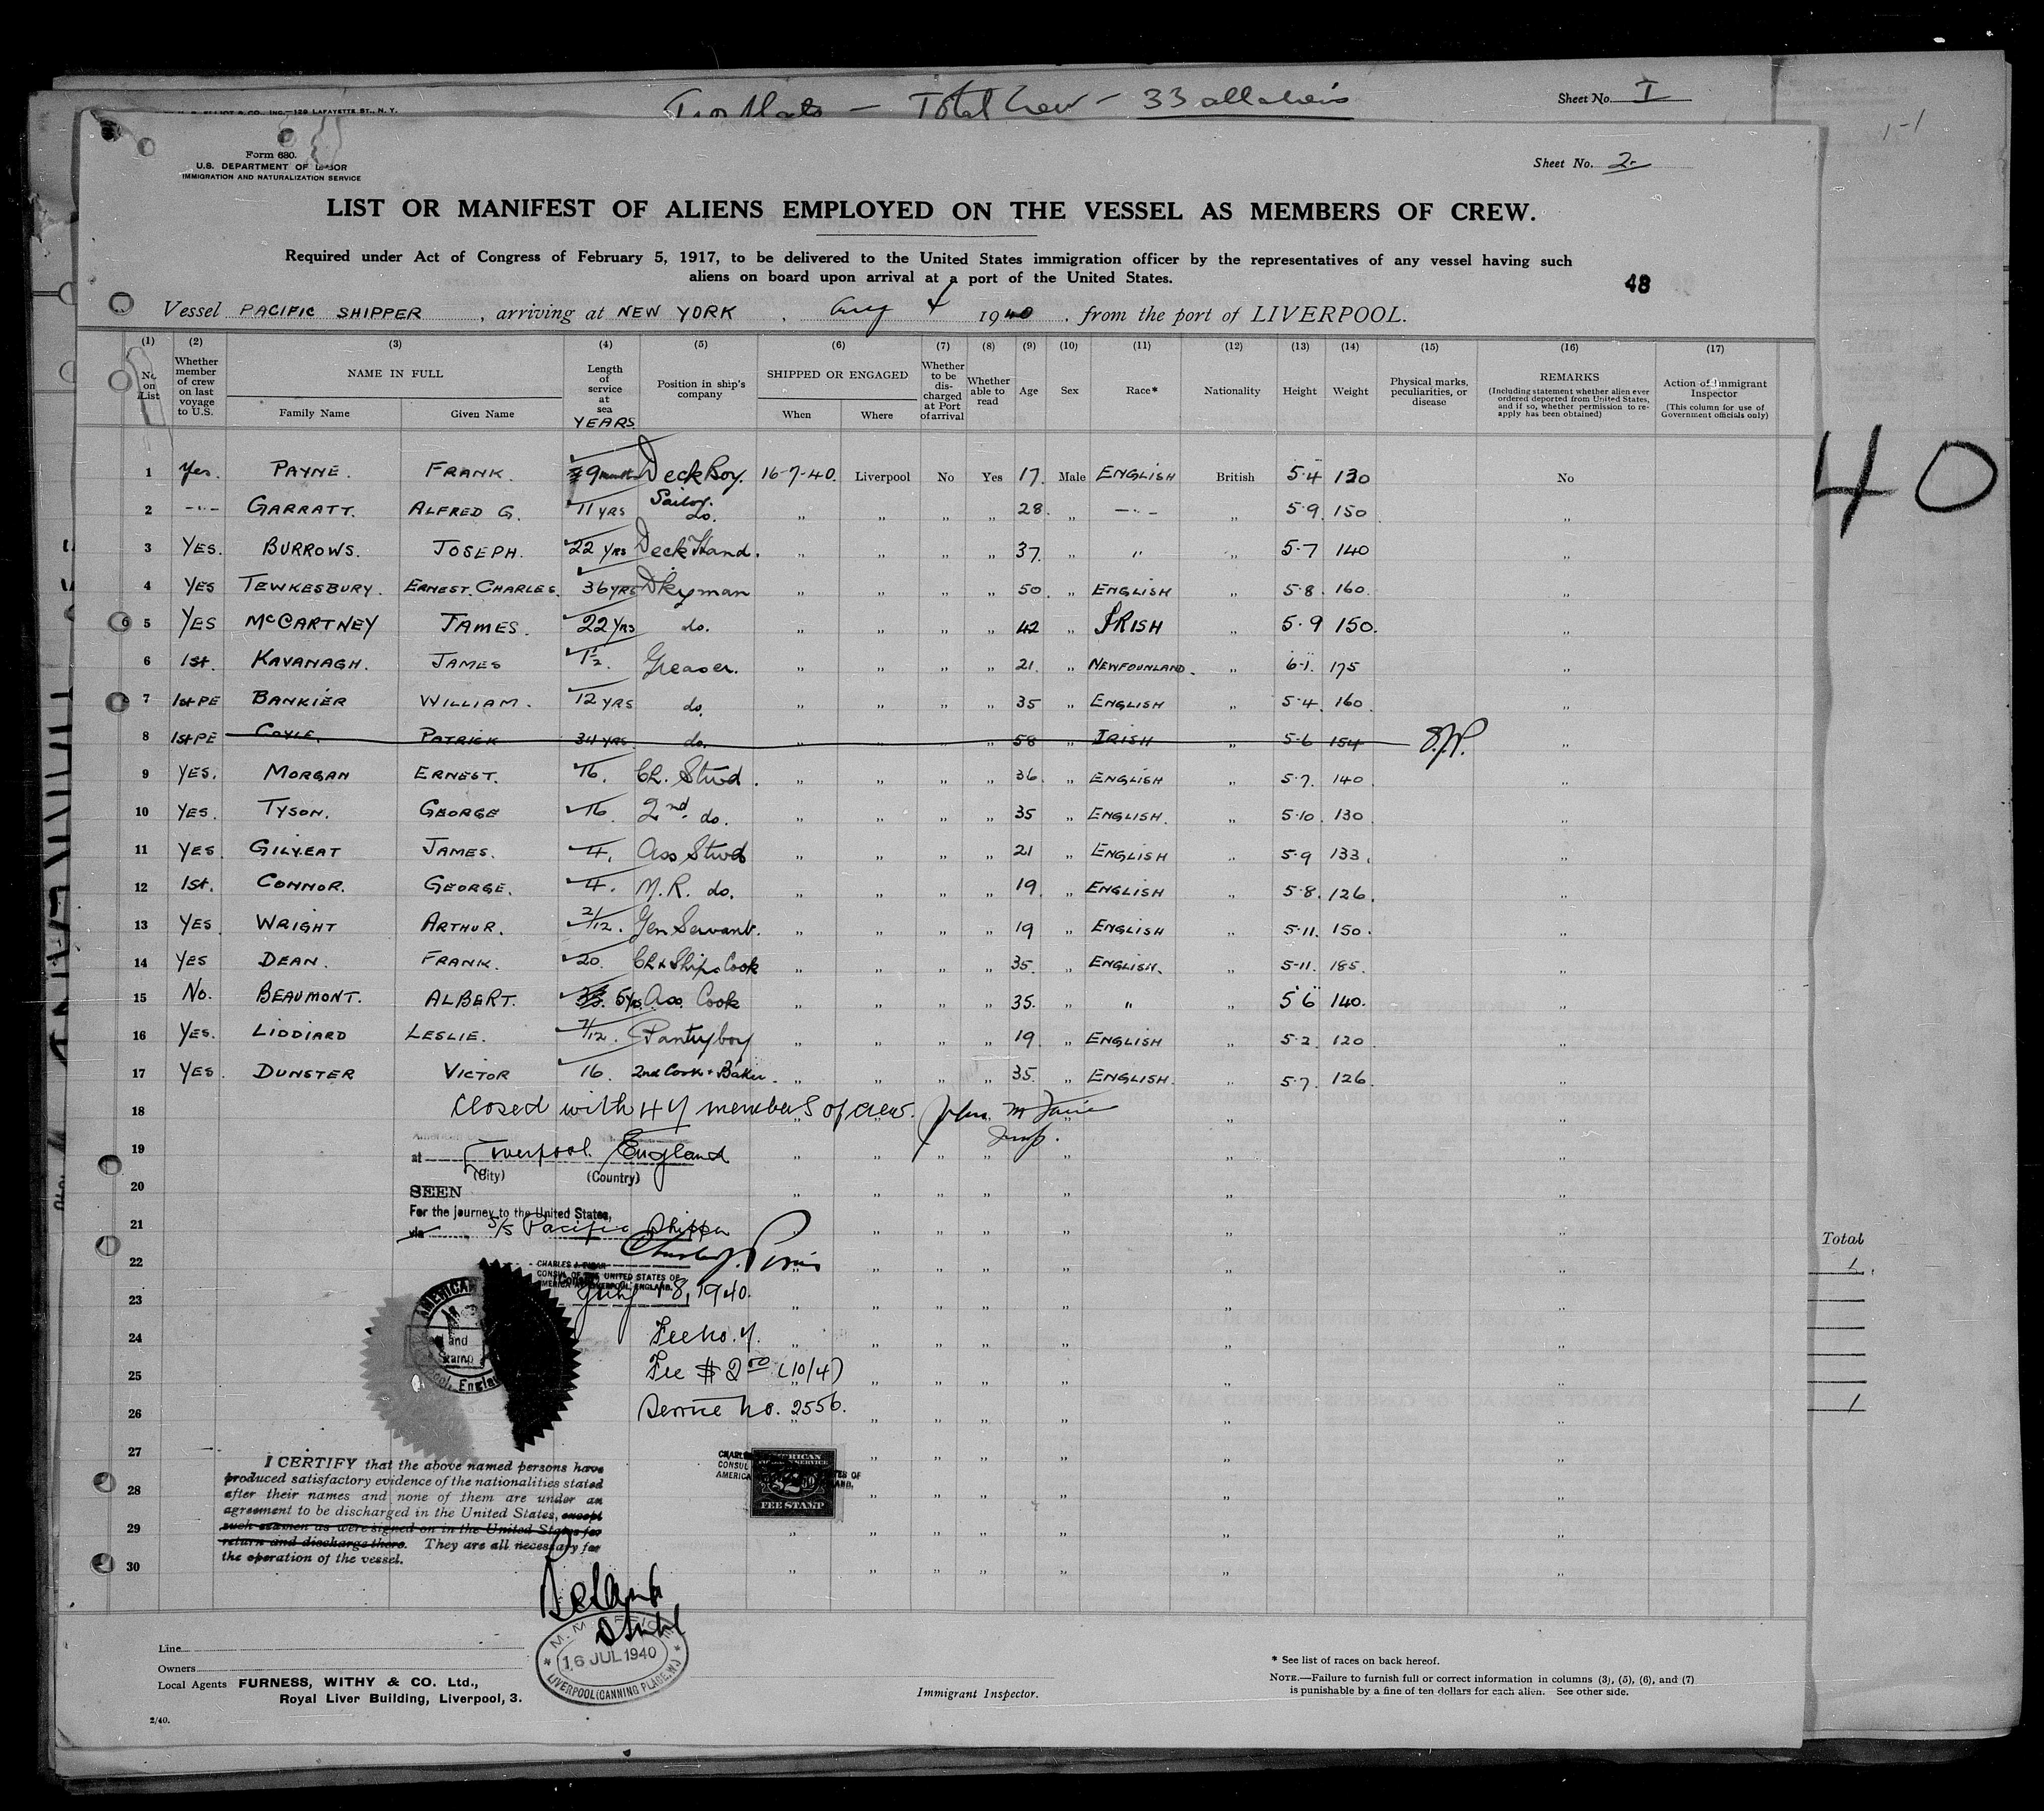 129 LAFAYETTE ST., N. Y.
Total Crew - 33 all aliens
Sheet No. I
Form 680.
U.S. DEPARTMENT OF LABOR
IMMIGRATION AND NATURALIZATION SERVICE
Sheet No. 2
LIST OR MANIFEST OF ALIENS EMPLOYED ON THE VESSEL AS MEMBERS OF CREW.
Required under Act of Congress of February 5, 1917, to be delivered to the United States immigration officer by the representatives of any vessel having such
aliens on board upon arrival at a port of the United States.
48
Vessel PACIFIC SHIPPER, arriving at NEW YORK, Aug 4 1940, from the port of LIVERPOOL.
(1) (2) (3) (4) (5) (6) (7) (8) (9) (10) (11) (12) (13) (14) (15) (16) (17)
No. on List
Whether member of crew on last voyage to U.S.
NAME IN FULL
Family Name Given Name
Length of service at sea YEARS
Position in ship's company
SHIPPED OR ENGAGED
When Where
Whether to be discharged at Port of arrival
Whether able to read
Age
Sex
Race*
Nationality
Height
Weight
Physical marks, peculiarities, or disease
REMARKS
(Including statement whether alien ever ordered deported from United States, and if so, whether permission to re-apply has been obtained)
Action of Immigrant Inspector
(This column for use of Government officials only)
1 Yes. PAYNE. FRANK. 9 months Deck Boy. 16-7-40. Liverpool No Yes 17. Male ENGLISH British 5·4 130 No
2 -·- GARRATT. ALFRED G. 11 YRS Sailor. do. „ „ „ „ 28. „ -·- „ 5·9. 150 „
3 YES. BURROWS. JOSEPH. 22 YRS Deck Hand. „ „ „ „ 37. „ " „ 5·7 140 „
4 YES TEWKESBURY. ERNEST. CHARLES. 36 YRS Dkyman „ „ „ „ 50. „ ENGLISH „ 5·8. 160. „
5 YES McCARTNEY JAMES. 22 YRS do. „ „ „ „ 42 „ IRISH „ 5·9 150. „
6 1st. KAVANAGH. JAMES 1½. Greaser. „ „ „ „ 21. „ NEWFOUNLAND. „ 6·1. 175 „
7 1st PE BANKIER WILLIAM. 12 YRS do. „ „ „ „ 35 „ ENGLISH „ 5·4. 160. „
8 1st PE COYLE. PATRICK 34 YRS. do. „ „ „ „ 58 „ IRISH „ 5·6 154 „
9 YES. MORGAN ERNEST. 16. Ch. Stwd. „ „ „ „ 36. „ ENGLISH „ 5·7. 140. „
10 YES. TYSON. GEORGE 16. 2nd do. „ „ „ „ 35 „ ENGLISH. „ 5·10. 130. „
11 YES GILVEAT JAMES. 4. Ass Stwd „ „ „ „ 21 „ ENGLISH „ 5·9 133. „
12 1st. CONNOR. GEORGE. 4. M.R. do. „ „ „ „ 19. „ ENGLISH „ 5·8. 126. „
13 YES WRIGHT ARTHUR. 2/12. Gen Servant. „ „ „ „ 19 „ ENGLISH „ 5·11. 150. „
14 YES DEAN. FRANK. 20. Ch & Ships Cook „ „ „ „ 35. „ ENGLISH. „ 5·11. 185. „
15 No. BEAUMONT. ALBERT. 5 Yrs. Ass. Cook „ „ „ „ 35. „ " „ 5 6 140. „
16 YES. LIDDIARD LESLIE. 7/12. Pantryboy „ „ „ „ 19. „ ENGLISH „ 5·2. 120 „
17 YES. DUNSTER VICTOR 16. 2nd Cook & Baker. „ „ „ „ 35. „ ENGLISH. „ 5·7. 126. „
18 Closed with 47 members of crew.
19 at Liverpool England
(City) (Country)
20 SEEN
For the journey to the United States,
21 via S/S Pacific Shipper
22
CONSUL OF THE UNITED STATES OF
AMERICA AT LIVERPOOL, ENGLAND.
23 July 18, 1940.
24 Fee No. 7.
25 Fee $2.00 (10/4)
26 Service No. 2556.
27
28
29
30
AMERICAN
and
Stamp
AMERICAN
FEE STAMP
I CERTIFY that the above named persons have
produced satisfactory evidence of the nationalities stated
after their names and none of them are under an
agreement to be discharged in the United States, except
such seamen as were signed on in the United States for
return and discharge there. They are all necessary for
the operation of the vessel.
M.M. OFFICE
16 JUL 1940
LIVERPOOL (CANNING PLACE, W.)
Line
Owners
Local Agents FURNESS, WITHY & CO. Ltd.,
Royal Liver Building, Liverpool, 3.
2/40.
Immigrant Inspector.
* See list of races on back hereof.
NOTE.—Failure to furnish full or correct information in columns (3), (5), (6), and (7)
is punishable by a fine of ten dollars for each alien. See other side.
40
Total
1
1